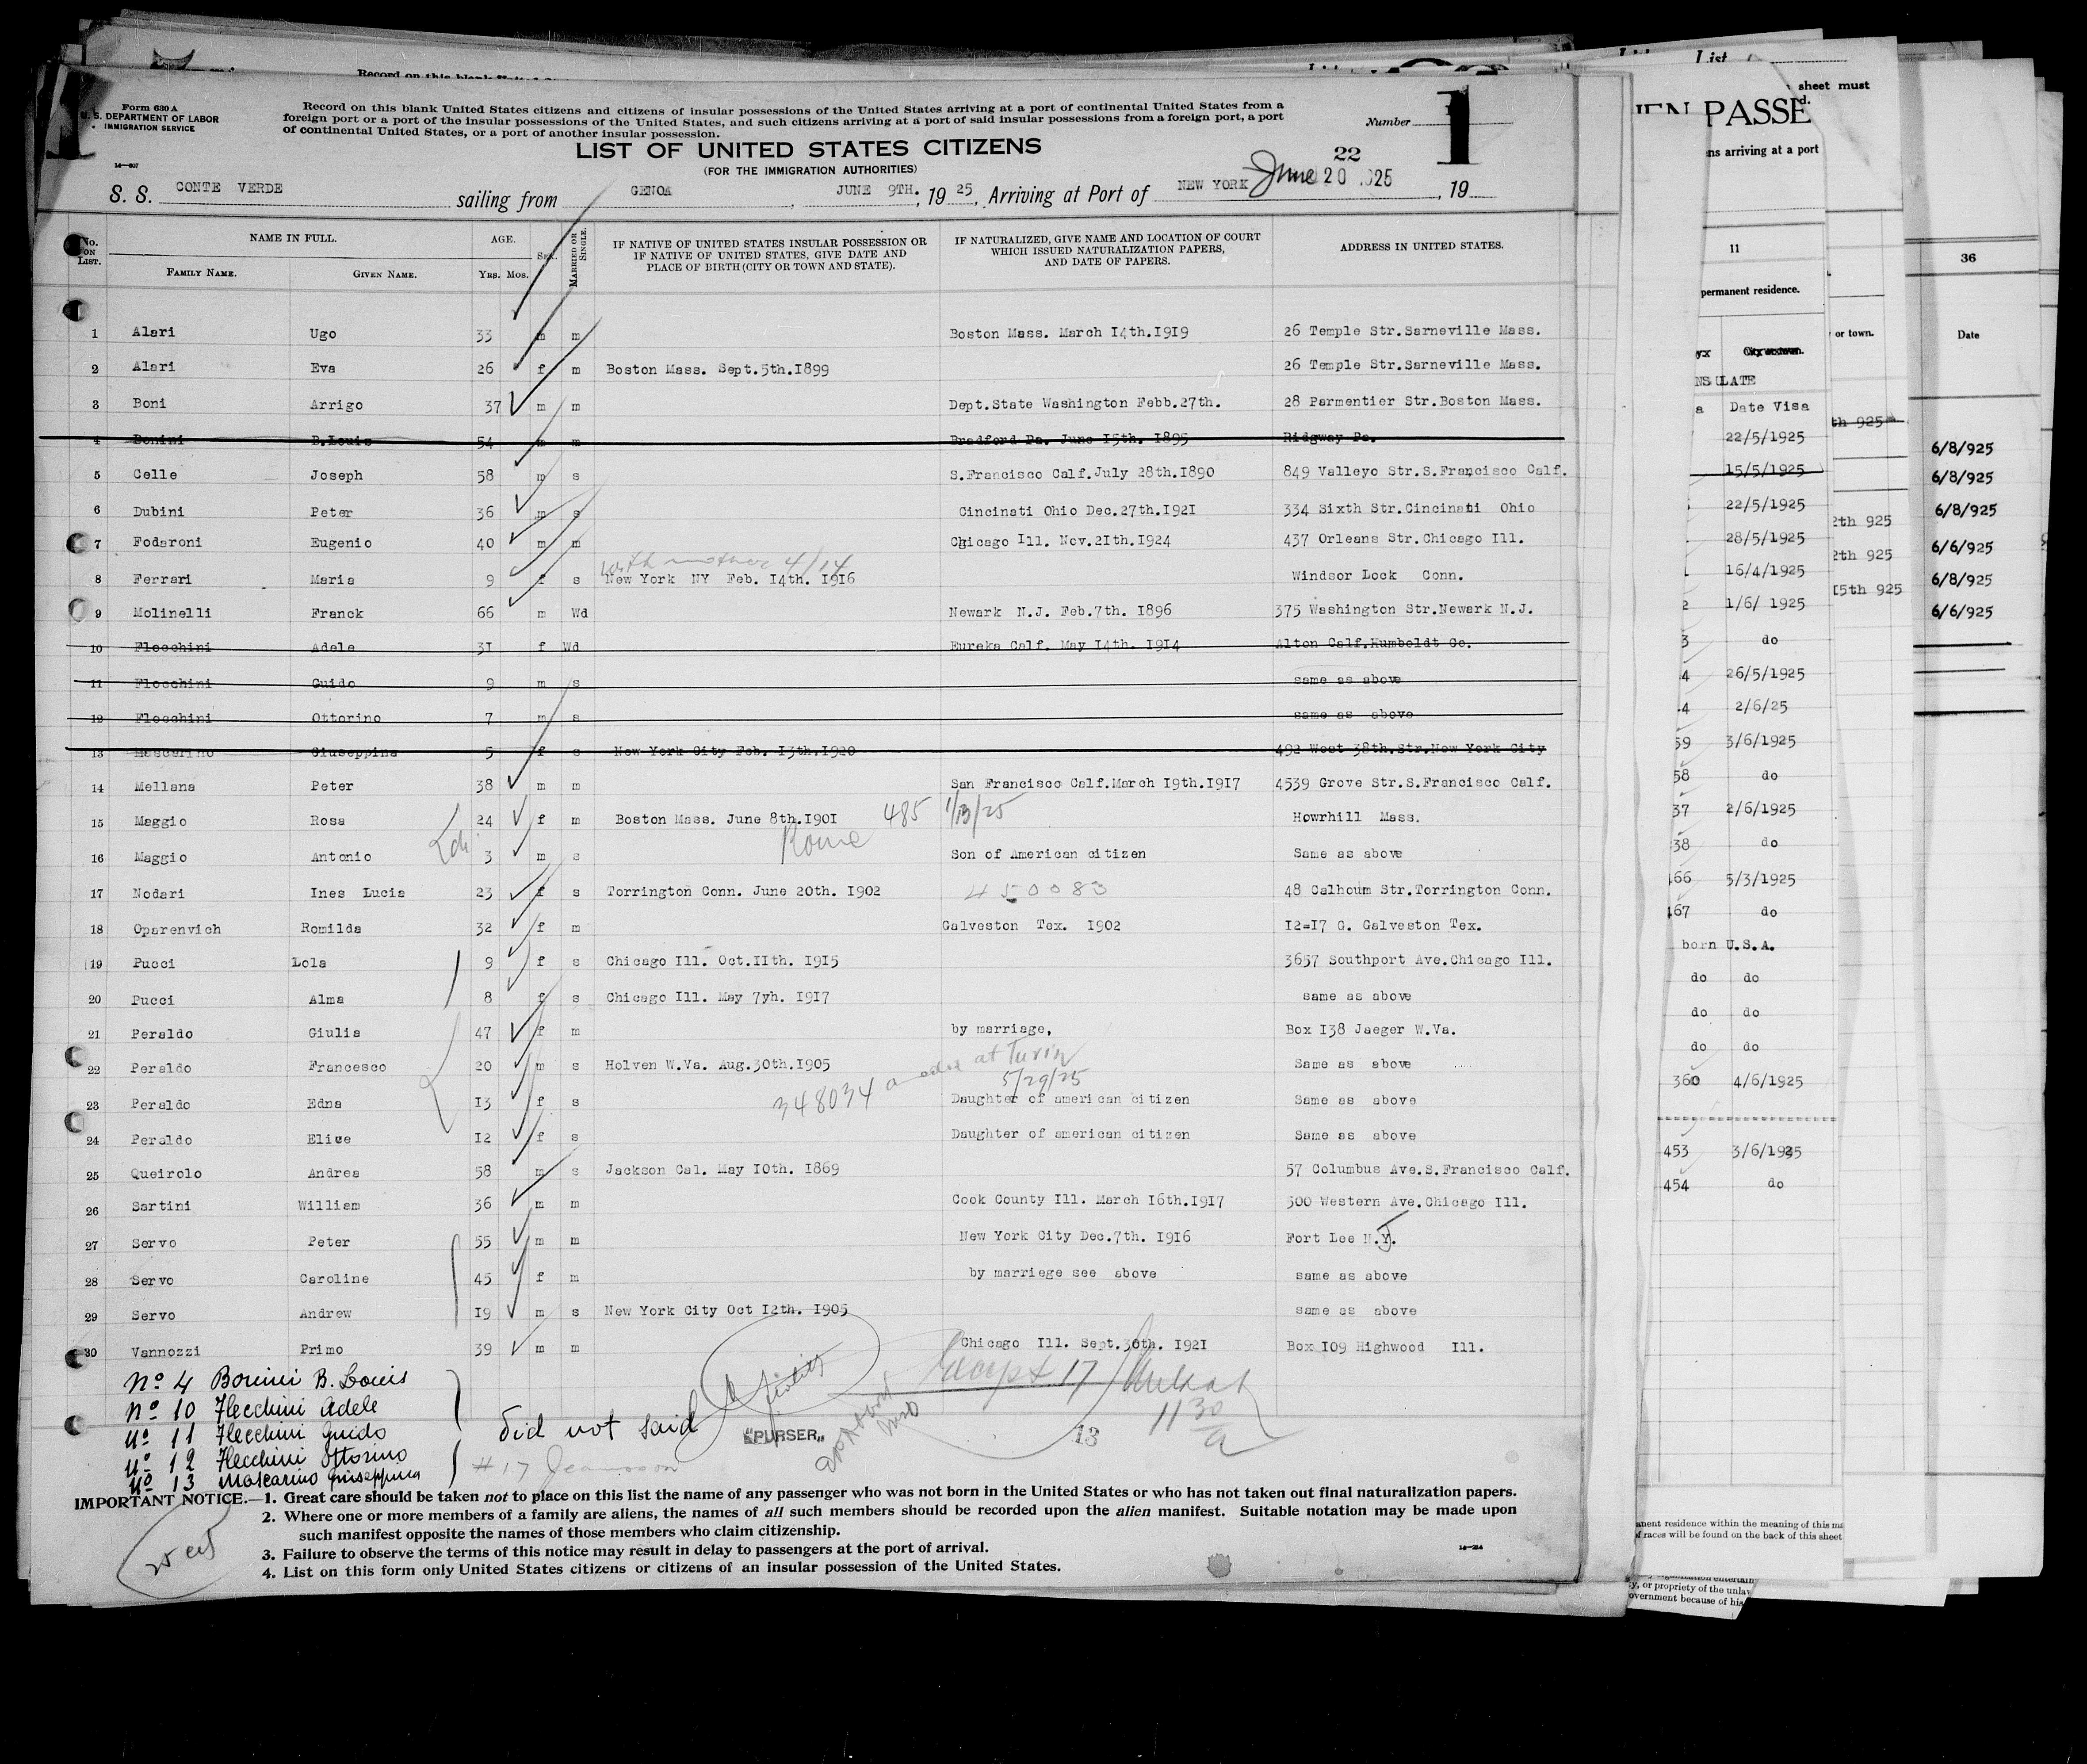 Form 630 A
U. S. DEPARTMENT OF LABOR
IMMIGRATION SERVICE
14—607
Record on this blank United States citizens and citizens of insular possessions of the United States arriving at a port of continental United States from a
foreign port or a port of the insular possessions of the United States, and such citizens arriving at a port of said insular possessions from a foreign port, a port
of continental United States, or a port of another insular possession.
Number 1
LIST OF UNITED STATES CITIZENS
(FOR THE IMMIGRATION AUTHORITIES)
S. S. CONTE VERDE sailing from GENOA, JUNE 9TH. , 19 25, Arriving at Port of NEW YORK June 22 20 1925, 19
No. ON LIST. NAME IN FULL. AGE. SEX. MARRIED OR SINGLE. IF NATIVE OF UNITED STATES INSULAR POSSESSION OR IF NATIVE OF UNITED STATES, GIVE DATE AND PLACE OF BIRTH (CITY OR TOWN AND STATE). IF NATURALIZED, GIVE NAME AND LOCATION OF COURT WHICH ISSUED NATURALIZATION PAPERS, AND DATE OF PAPERS. ADDRESS IN UNITED STATES.
FAMILY NAME. GIVEN NAME. YRS. MOS.
1 Alari Ugo 33 m m Boston Mass. March I4th.I9I9 26 Temple Str.Sarneville Mass.
2 Alari Eva 26 f m Boston Mass. Sept.5th.I899 26 Temple Str.Sarneville Mass.
3 Boni Arrigo 37 m m Dept.State Washington Febb.27th. 28 Parmentier Str.Boston Mass.
4 Bonini B.Louis 54 m m Bradford Pa. June I5th. I895 Ridgway Pa.
5 Celle Joseph 58 m s S.Francisco Calf.July 28th.I890 849 Valleyo Str.S.Francisco Calf.
6 Dubini Peter 36 m s Cincinati Ohio Dec.27th.I92I 334 Sixth Str.Cincinati Ohio
7 Fodaroni Eugenio 40 m m Chicago Ill. Nov.2Ith.I924 437 Orleans Str.Chicago Ill.
with mother 4/14
8 Ferrari Maria 9 f s New York NY Feb. I4th. I9I6 Windsor Lock Conn.
9 Molinelli Franck 66 m Wd Newark N.J. Feb.7th. I896 375 Washington Str.Newark N.J.
10 Flocchini Adele 3I f Wd Eureka Calf. May I4th. I9I4 Alton Calf.Humboldt Co.
11 Flocchini Guido 9 m s same as above
12 Flocchini Ottorino 7 m s same as above
13 Mascarino Giuseppina 5 f s New York City Feb. I3th.I920 492 West 38th.Str.New York City
14 Mellana Peter 38 m m San Francisco Calf.March I9th.I9I7 4539 Grove Str.S.Francisco Calf.
15 Maggio Rosa 24 f m Boston Mass. June 8th.I90I 485 1/13/25 Howrhill Mass.
Rome
16 Maggio Antonio 3 m s Son of American citizen Same as above
17 Nodari Ines Lucia 23 f s Torrington Conn. June 20th. I902 450083 48 Calhoum Str.Torrington Conn.
18 Oparenvich Romilda 32 f m Galveston Tex. I902 I2=I7 G. Galveston Tex.
19 Pucci Lola 9 f s Chicago Ill. Oct.IIth. I9I5 3657 Southport Ave.Chicago Ill.
20 Pucci Alma 8 f s Chicago Ill. May 7yh. I9I7 same as above
21 Peraldo Giulia 47 f m by marriage, Box I38 Jaeger W.Va.
22 Peraldo Francesco 20 m s Holven W.Va. Aug.30th.I905 Same as above
348034 at Turin
5/29/25
23 Peraldo Edna I3 f s Daughter of american citizen Same as above
24 Peraldo Elice I2 f s Daughter of american citizen Same as above
25 Queirolo Andrea 58 m s Jackson Cal. May I0th. I869 57 Columbus Ave.S.Francisco Calf.
26 Sartini William 36 m m Cook County Ill. March I6th.I9I7 500 Western Ave.Chicago Ill.
27 Servo Peter 55 m m New York City Dec.7th. I9I6 Fort Lee N.J.
28 Servo Caroline 45 f m by marriege see above same as above
29 Servo Andrew I9 m s New York City Oct I2th. I905 same as above
30 Vannozzi Primo 39 m m Chicago Ill. Sept.30th. I92I Box I09 Highwood Ill.
No 4 Bonini B. Louis
No 10 Flecchini Adele
No 11 Flecchini Guido
No 12 Flecchini Ottorino
No 13 Mascarino Giuseppina
did not said
"PURSER"
Except 17
11 30 a
13
# 17
IMPORTANT NOTICE.—1. Great care should be taken not to place on this list the name of any passenger who was not born in the United States or who has not taken out final naturalization papers.
2. Where one or more members of a family are aliens, the names of all such members should be recorded upon the alien manifest. Suitable notation may be made upon
such manifest opposite the names of those members who claim citizenship.
3. Failure to observe the terms of this notice may result in delay to passengers at the port of arrival.
4. List on this form only United States citizens or citizens of an insular possession of the United States.
14—214
List
sheet must
PASSE
ns arriving at a port
11
permanent residence.
NSULATE
Date Visa
22/5/1925
15/5/1925
22/5/1925
28/5/1925
16/4/1925
1/6/ 1925
do
26/5/1925
2/6/25
59 3/6/1925
58 do
37 2/6/1925
38 do
166 5/3/1925
167 do
born U.S.A.
do do
do do
do do
360 4/6/1925
453 3/6/1925
454 do
anent residence within the meaning of this ma
f races will be found on the back of this sheet
or town.
th 925
2th 925
2th 925
I5th 925
36
Date
6/8/925
6/8/925
6/8/925
6/6/925
6/8/925
6/6/925
y, or propriety of the unlaw
overnment because of his